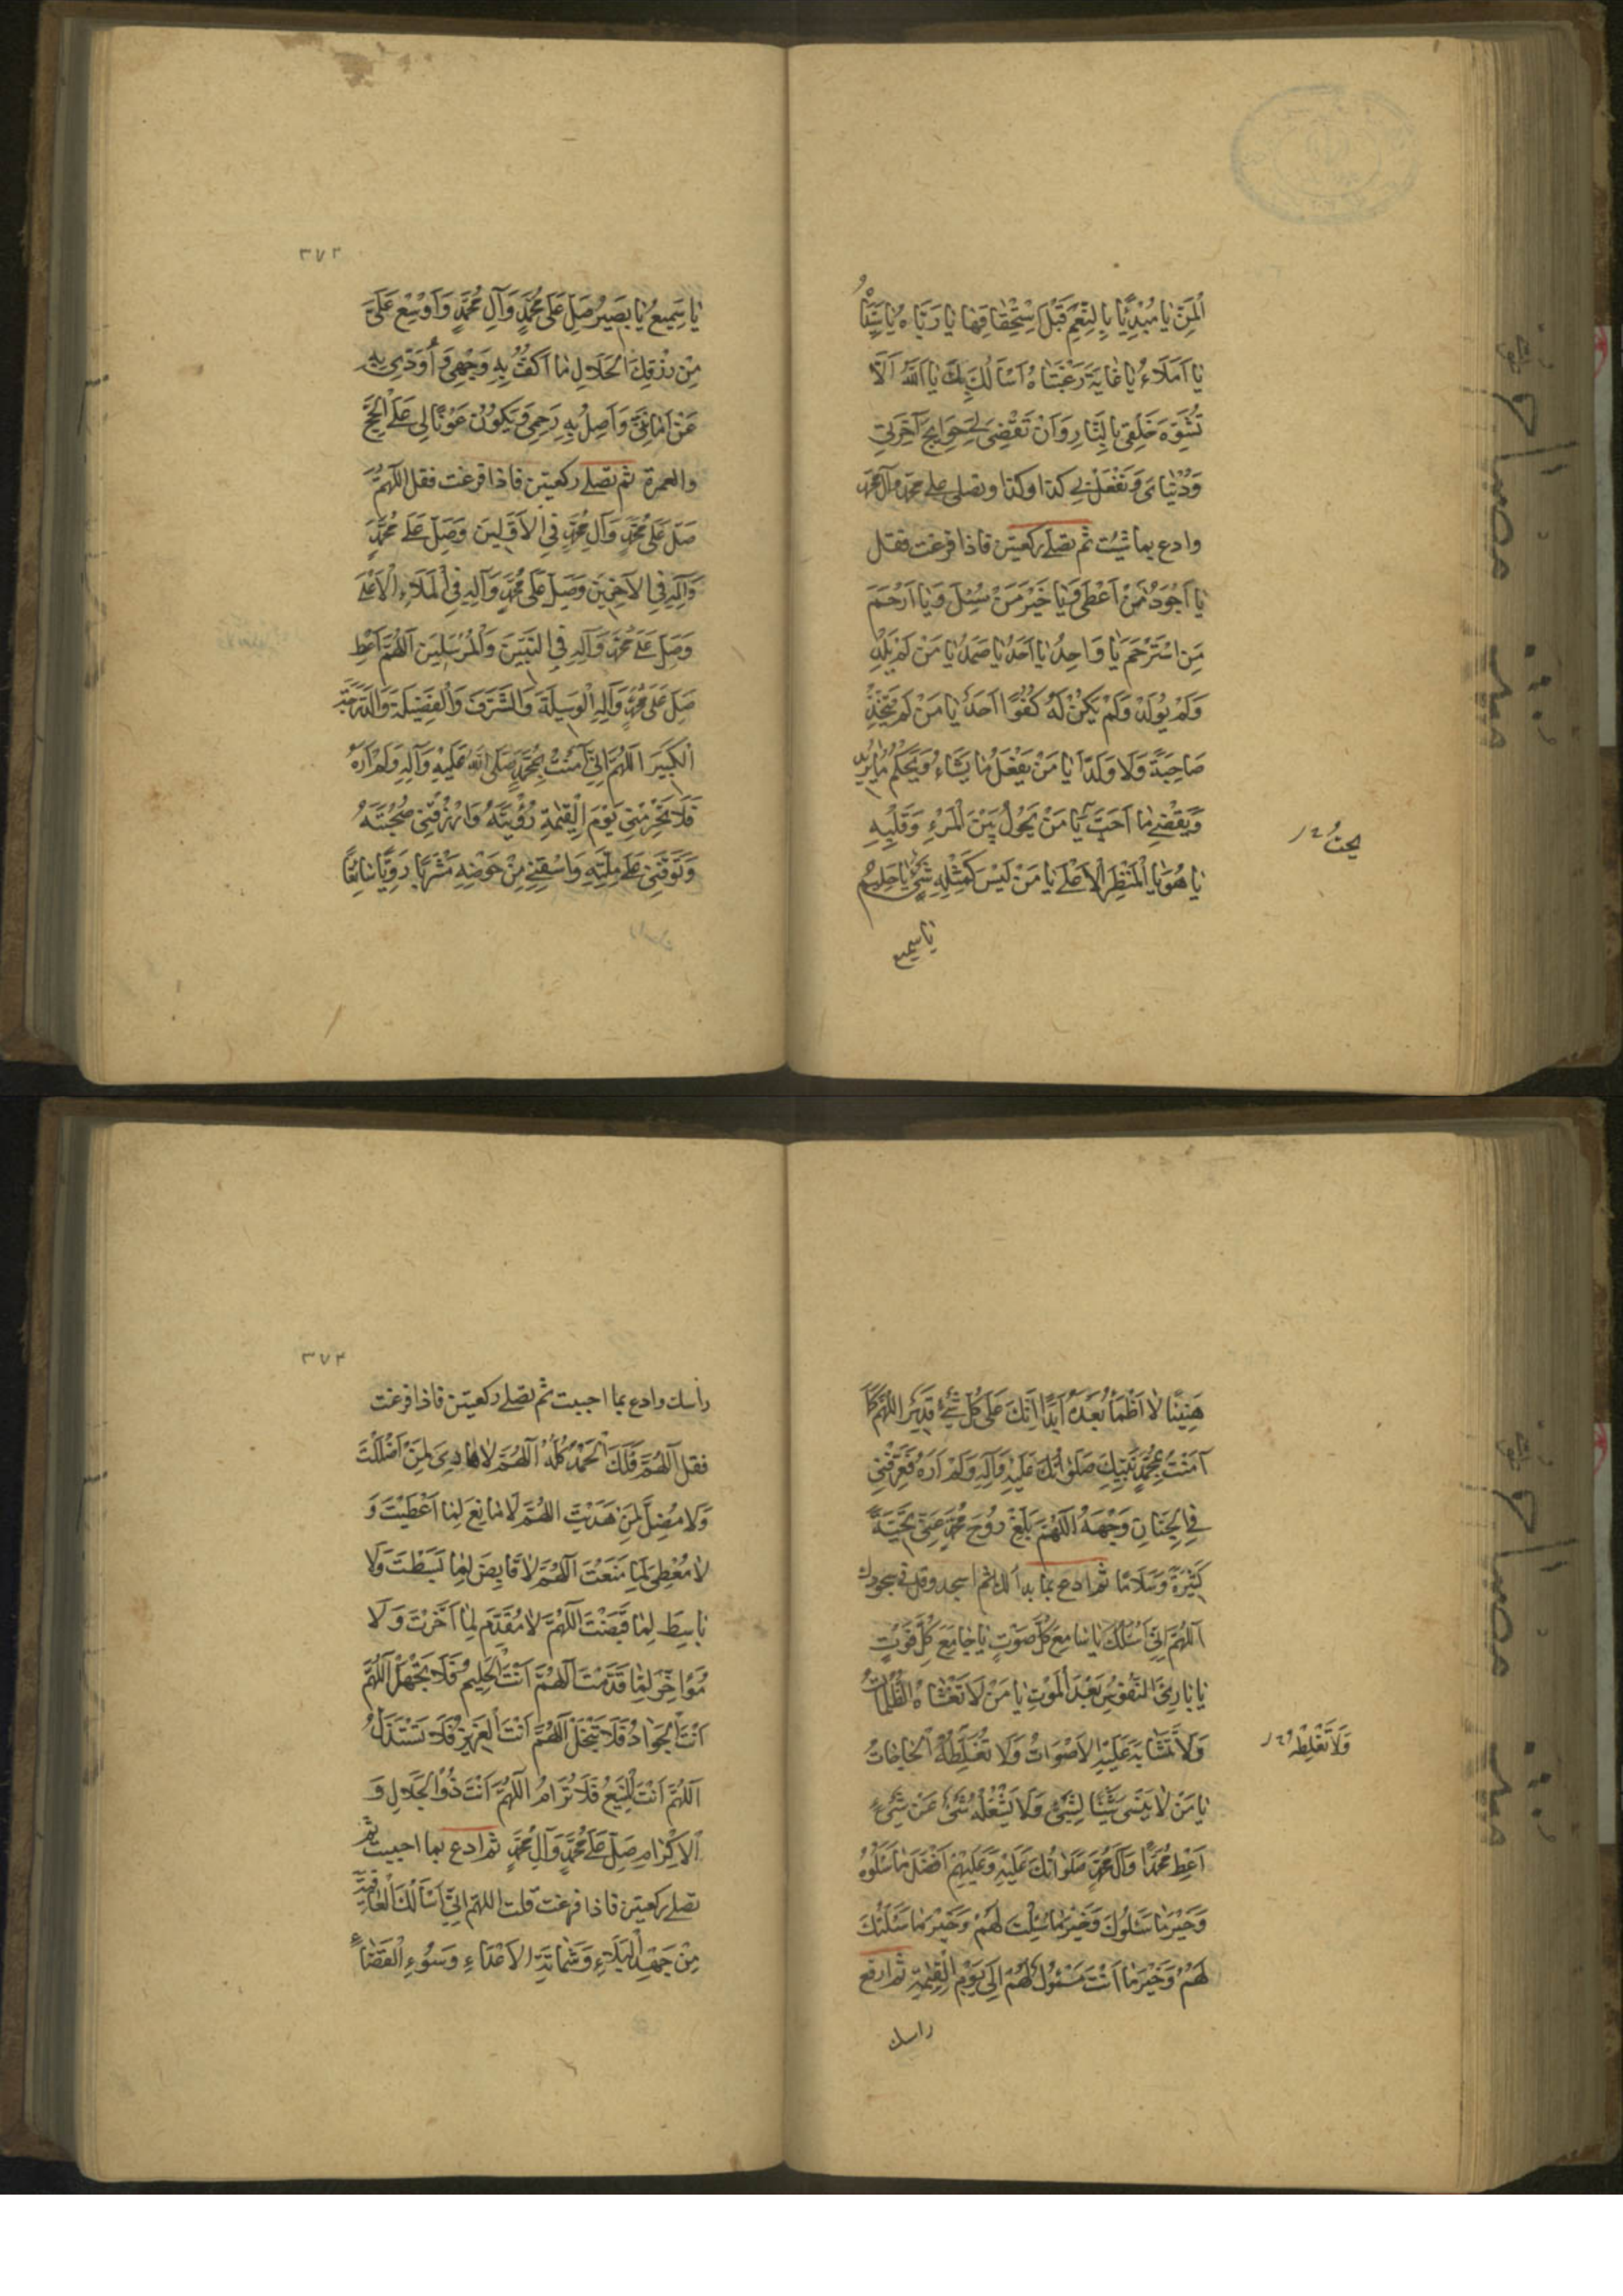 اَلْمَنِّ يَا مُبْدِئًا بِالنِّعَمِ قَبْلَ اسْتِحْقَاقِهَا يَا رَبَّاهُ يَا سَيِّدَاهُ
يَا اَمَلَاهُ يَا غَايَةَ رَغْبَتَاهُ اَسْاَلُكَ بِكَ يَا اَللّٰهُ اَلَّا
تُشَوِّهَ خَلْقِي بِالنَّارِ وَاَنْ تَقْضِيَ لِي حَوَائِجَ آخِرَتِي
وَدُنْيَايَ وَتَفْعَلَ بِي كذا وكذا وتصلى على محمد وآل محمد
وادع بما شئت ثم تصلى ركعتين فاذا فرغت فقل
يَا اَجْوَدَ مَنْ اَعْطَى وَيَا خَيْرَ مَنْ سُئِلَ وَيَا اَرْحَمَ
مَنِ اسْتُرْحِمَ يَا وَاحِدُ يَا اَحَدُ يَا صَمَدُ يَا مَنْ لَمْ يَلِدْ
وَلَمْ يُولَدْ وَلَمْ يَكُنْ لَهُ كُفُوًا اَحَدٌ يَا مَنْ لَمْ يَتَّخِذْ
صَاحِبَةً وَلَا وَلَدًا يَا مَنْ يَفْعَلُ مَا يَشَاءُ وَيَحْكُمُ مَا يُرِيدُ
وَيَقْضِي مَا اَحَبَّ يَا مَنْ يَحُولُ بَيْنَ الْمَرْءِ وَقَلْبِهِ
يَا هُوَ يَا بِالْمَنْظَرِ الْاَعْلَى يَا مَنْ لَيْسَ كَمِثْلِهِ شَيْءٌ يَا حَلِيمُ
يا سميع
٣٧٢
يَا سَمِيعُ يَا بَصِيرُ صَلِّ عَلَى مُحَمَّدٍ وَآلِ مُحَمَّدٍ وَاَوْسِعْ عَلَيَّ
مِنْ رِزْقِكَ الْحَلَالِ مَا اَكُفُّ بِهِ وَجْهِي وَاُؤَدِّي بِهِ
عَنْ اَمَانَتِي وَاَصِلُ بِهِ رَحِمِي وَيَكُونُ عَوْنًا لِي عَلَى الْحَجِّ
والعمرة ثم تصلى ركعتين فاذا فرغت فقل اللّٰهُمَّ
صَلِّ عَلَى مُحَمَّدٍ وَآلِ مُحَمَّدٍ فِي الْاَوَّلِينَ وَصَلِّ عَلَى مُحَمَّدٍ
وَآلِهِ فِي الْآخِرِينَ وَصَلِّ عَلَى مُحَمَّدٍ وَآلِهِ فِي الْمَلَاءِ الْاَعْلَى
وَصَلِّ عَلَى مُحَمَّدٍ وَآلِهِ فِي النَّبِيِّينَ وَالْمُرْسَلِينَ اَللّٰهُمَّ اَعْطِ
صَلِّ عَلَى مُحَمَّدٍ وَآلِهِ الْوَسِيلَةَ وَالشَّرَفَ وَالْفَضِيلَةَ وَالدَّرَجَةَ
الْكَبِيرَ اَللّٰهُمَّ اِنِّي آمَنْتُ بِمُحَمَّدٍ صَلَّى اللّٰهُ عَلَيْهِ وَآلِهِ وَلَمْ اَرَهُ
فَلَا تَحْرِمْنِي يَوْمَ الْقِيٰمَةِ رُؤْيَتَهُ وَارْزُقْنِي صُحْبَتَهُ
وَتَوَفَّنِي عَلَى مِلَّتِهِ وَاسْقِنِي مِنْ حَوْضِهِ مَشْرَبًا رَوِيًّا سَائِغًا
هَنِيئًا لَا اَظْمَأُ بَعْدَهُ اَبَدًا اِنَّكَ عَلَى كُلِّ شَيْءٍ قَدِيرٌ اللّٰهُمَّ كَمَا
آمَنْتُ بِمُحَمَّدٍ نَبِيِّكَ صَلَوَاتُكَ عَلَيْهِ وَآلِهِ وَلَمْ اَرَهُ فَعَرِّفْنِي
فِي الْجِنَانِ وَجْهَهُ اَللّٰهُمَّ بَلِّغْ رُوحَ مُحَمَّدٍ عَنِّي تَحِيَّةً
كَثِيرَةً وَسَلَامًا ثم ادع بما بدا لك ثم اسجد وقل في سجودك
اَللّٰهُمَّ اِنِّي اَسْئَلُكَ يَا سَامِعَ كُلِّ صَوْتٍ يَا جَامِعَ كُلِّ فَوْتٍ
يَا بَارِئَ النُّفُوسِ بَعْدَ الْمَوْتِ يَا مَنْ لَا تَغْشَاهُ الظُّلُمَاتُ
وَلَا تَشَابَهُ عَلَيْهِ الْاَصْوَاتُ وَلَا تُغَلِّطُهُ الْحَاجَاتُ
وَلَا تُغْلِطُهُ
يَا مَنْ لَا يَنْسَى شَيْئًا لِشَيْءٍ وَلَا يَشْغَلُهُ شَيْءٌ عَنْ شَيْءٍ
اَعْطِ مُحَمَّدًا وَآلَ مُحَمَّدٍ صَلَوَاتُكَ عَلَيْهِ وَعَلَيْهِمْ اَفْضَلَ مَا سَئَلُوكَ
وَخَيْرَ مَا سَئَلُوكَ وَخَيْرَ مَا سُئِلْتَ لَهُمْ وَخَيْرَ مَا سَئَلْتُكَ
لَهُمْ وَخَيْرَ مَا اَنْتَ مَسْئُولٌ لَهُمْ اِلَى يَوْمِ الْقِيٰمَةِ ثم ارفع
راسك
٣٧٣
رأسك وادع بما احببت ثم تصلى ركعتين فاذا فرغت
فقل اَللّٰهُمَّ فَلَكَ الْحَمْدُ كُلُّهُ اَللّٰهُمَّ لَا هَادِيَ لِمَنْ اَضْلَلْتَ
وَلَا مُضِلَّ لِمَنْ هَدَيْتَ اللّٰهُمَّ لَا مَانِعَ لِمَا اَعْطَيْتَ وَ
لَا مُعْطِيَ لِمَا مَنَعْتَ اَللّٰهُمَّ لَا قَابِضَ لِمَا بَسَطْتَ وَلَا
بَاسِطَ لِمَا قَبَضْتَ اَللّٰهُمَّ لَا مُقَدِّمَ لِمَا اَخَّرْتَ وَلَا
مُؤَاخِّرَ لِمَا قَدَّمْتَ اَللّٰهُمَّ اَنْتَ الْحَلِيمُ فَلَا تَجْهَلُ اَللّٰهُمَّ
اَنْتَ الْجَوَادُ فَلَا تَبْخَلُ اَللّٰهُمَّ اَنْتَ الْعَزِيزُ فَلَا تُسْتَذَلُّ
اَللّٰهُمَّ اَنْتَ الْمَنِيعُ فَلَا تُرَامُ اَللّٰهُمَّ اَنْتَ ذُو الْجَلَالِ وَ
الْاِكْرَامِ صَلِّ عَلَى مُحَمَّدٍ وَآلِ مُحَمَّدٍ ثم ادع بما احببت ثم
تصلى ركعتين فاذا فرغت قلت اللّٰهُمَّ اِنِّي اَسْاَلُكَ الْعَافِيَةَ
مِنْ جَهْدِ الْبَلَاءِ وَشَمَاتَةِ الْاَعْدَاءِ وَسُوءِ الْقَضَاءِ